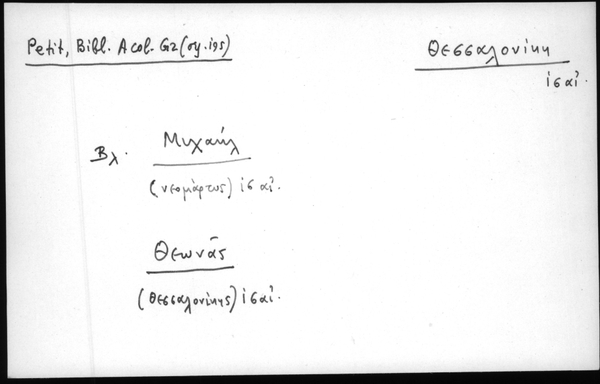 Petit, Bibl. Acol. Gr (σγ. 195)
Θεσσαλονίκη
ις αἰ.
Βλ. Μιχαήλ
(νεομάρτυς) ις αἰ.
Θεωνᾶς
(Θεσσαλονίκης) ις αἰ.